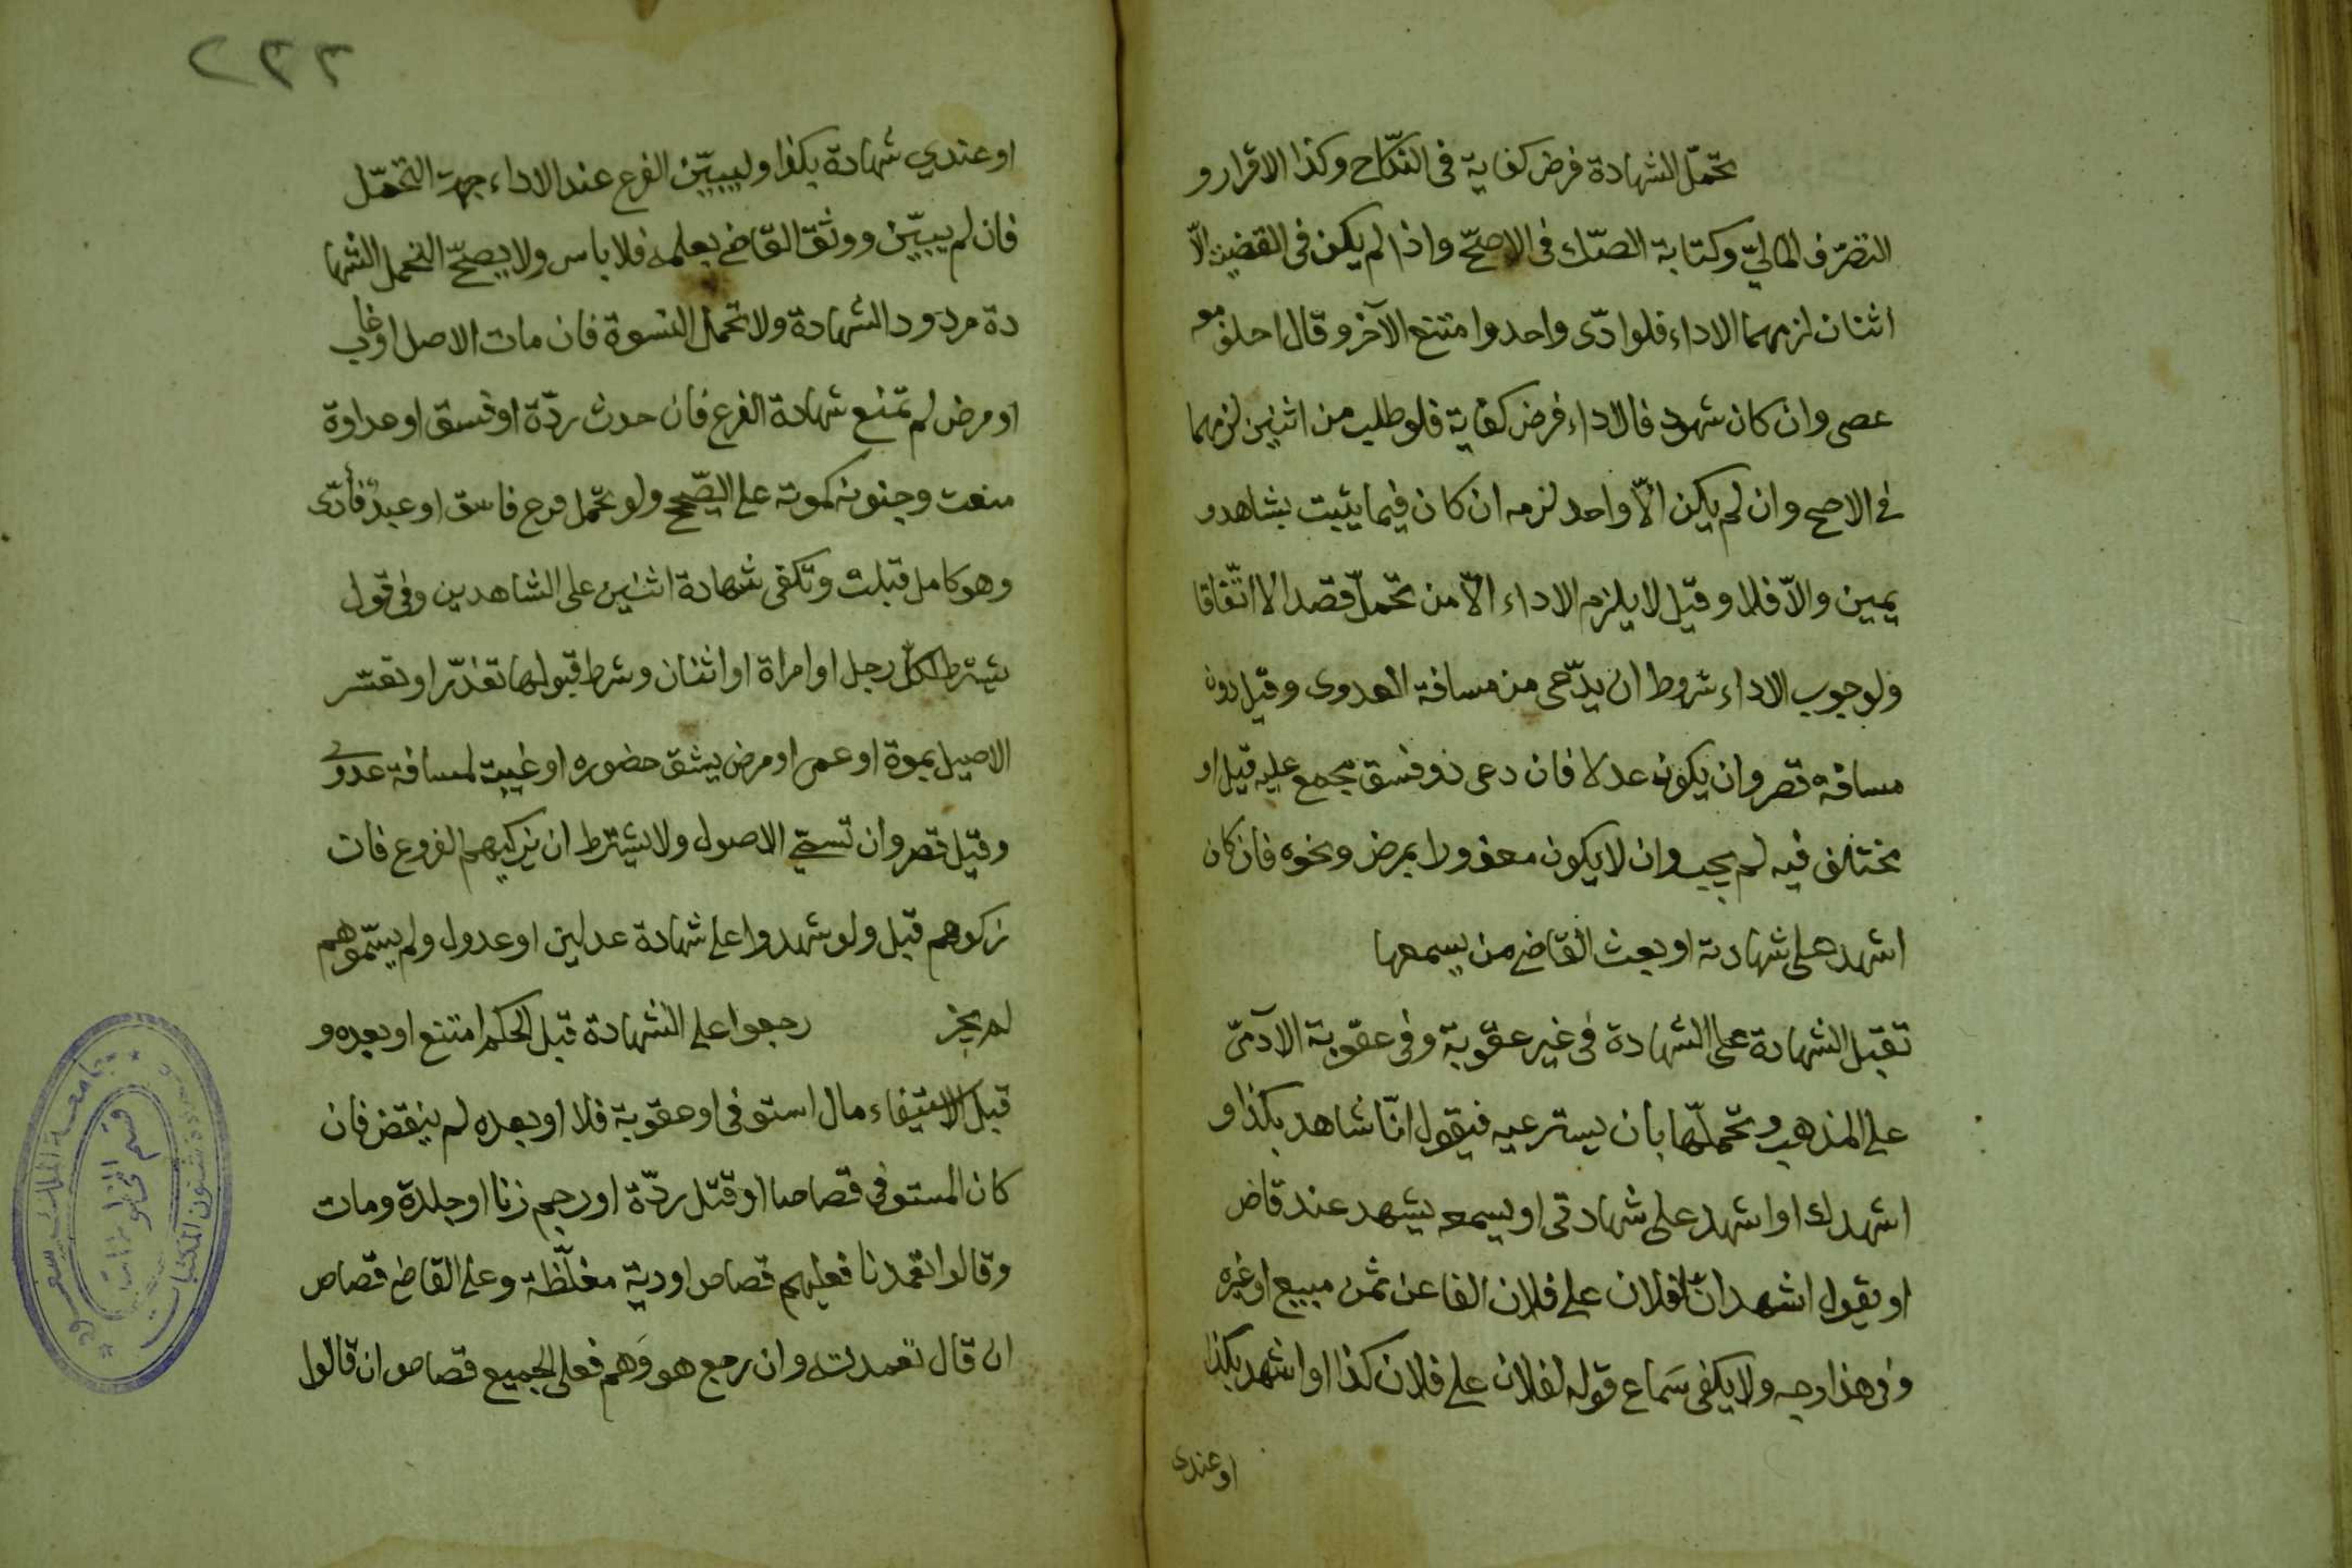 تحمّل الشهادة فرض كفاية فى النّكاح وكذا الاقرار و
التصرّف الماليّ وكتابة الصّك فى الاصحّ واذا لم يكن فى القضية الّا
اثنان لزمهما الاداء فلو ادّى واحد وامتنع الآخر وقال احلف معه
عصى وان كان شهود فالاداء فرض كفاية فلو طلب من اثنين لزمهما
في الاصح وان لم يكن الّا واحد لزمه ان كان فيما يثبت بشاهد و
يمين والّا فلا وقيل لا يلزم الاداء الّا من تحمّل قصدا لا اتّفاقا
ولوجوب الاداء شروط ان يدّعى من مسافة العدوى وقيل دون
مسافة قصر وان يكون عدلا فان دعى ذو فسق مجمع عليه قيل او
مختلف فيه لم يجب وان لا يكون معذورا بمرض ونحوه فان كان
اشهد على شهادته او بعث القاضي من يسمعها
تقبل الشهادة على الشهادة فى غير عقوبة وفى عقوبة الآدمىّ
على المذهب وتحمّلها بان يسترعيه فيقول انّا شاهد بكذا و
اشهدك او اشهد على شهادتى او يسمعه يشهد عند قاض
او يقول اشهد انّ لفلان على فلان الفا عن ثمن مبيع او غيره
وفى هذا وجه ولا يكفى سَماع قوله لفلان على فلان كذا او اشهد بكذا
او عندى
٢٣٣
او عندي شهادة بكذا وليبيّن الفرع عند الاداء جهة التحمّل
فان لم يبيّن ووثق القاضي بعلمه فلا باس ولا يصحّ التحمل الشها
دة مردود الشهادة ولا تحمل النسوة فان مات الاصل او غاب
او مرض لم تمنع شهادة الفرع فان حدث ردّة او فسق او عداوة
منعت وجنونه كموته على الصّحيح ولو تحمّل فرع فاسق او عبد فأدّى
وهو كامل قبلت وتكفى شهادة اثنين على الشاهدين وفى قول
يشترط لكلّ رجل او امراة او اثنان وشرط قبولها تعذّر او تعسّر
الاصيل بموة او عمى او مرض يشق حضوره او غيبة لمسافة عدوى
وقيل قصر وان تسمّي الاصول ولا يشترط ان يزكيهم الفروع فان
زكوهم قبل ولو شهدوا على شهادة عدلين او عدول ولم يسمّوهم
لم يجز رجعوا على الشهادة قبل الحكم امتنع او بعده و
قبل الاستيفاء مال استوفى او عقوبة فلا او بعده لم ينقض فان
كان المستوفى قصاصا او قتل ردّة او رجم زنا او جلدة ومات
وقالوا تعمدنا فعليهم قصاص او دية مغلّظة وعلى القاضي قصاص
ان قال تعمدت وان رجع هو وَهم فعلى الجميع قصاص ان قالوا
جامعة الملك سعود
عمادة شئون المكتبات
قسم المخطوطات